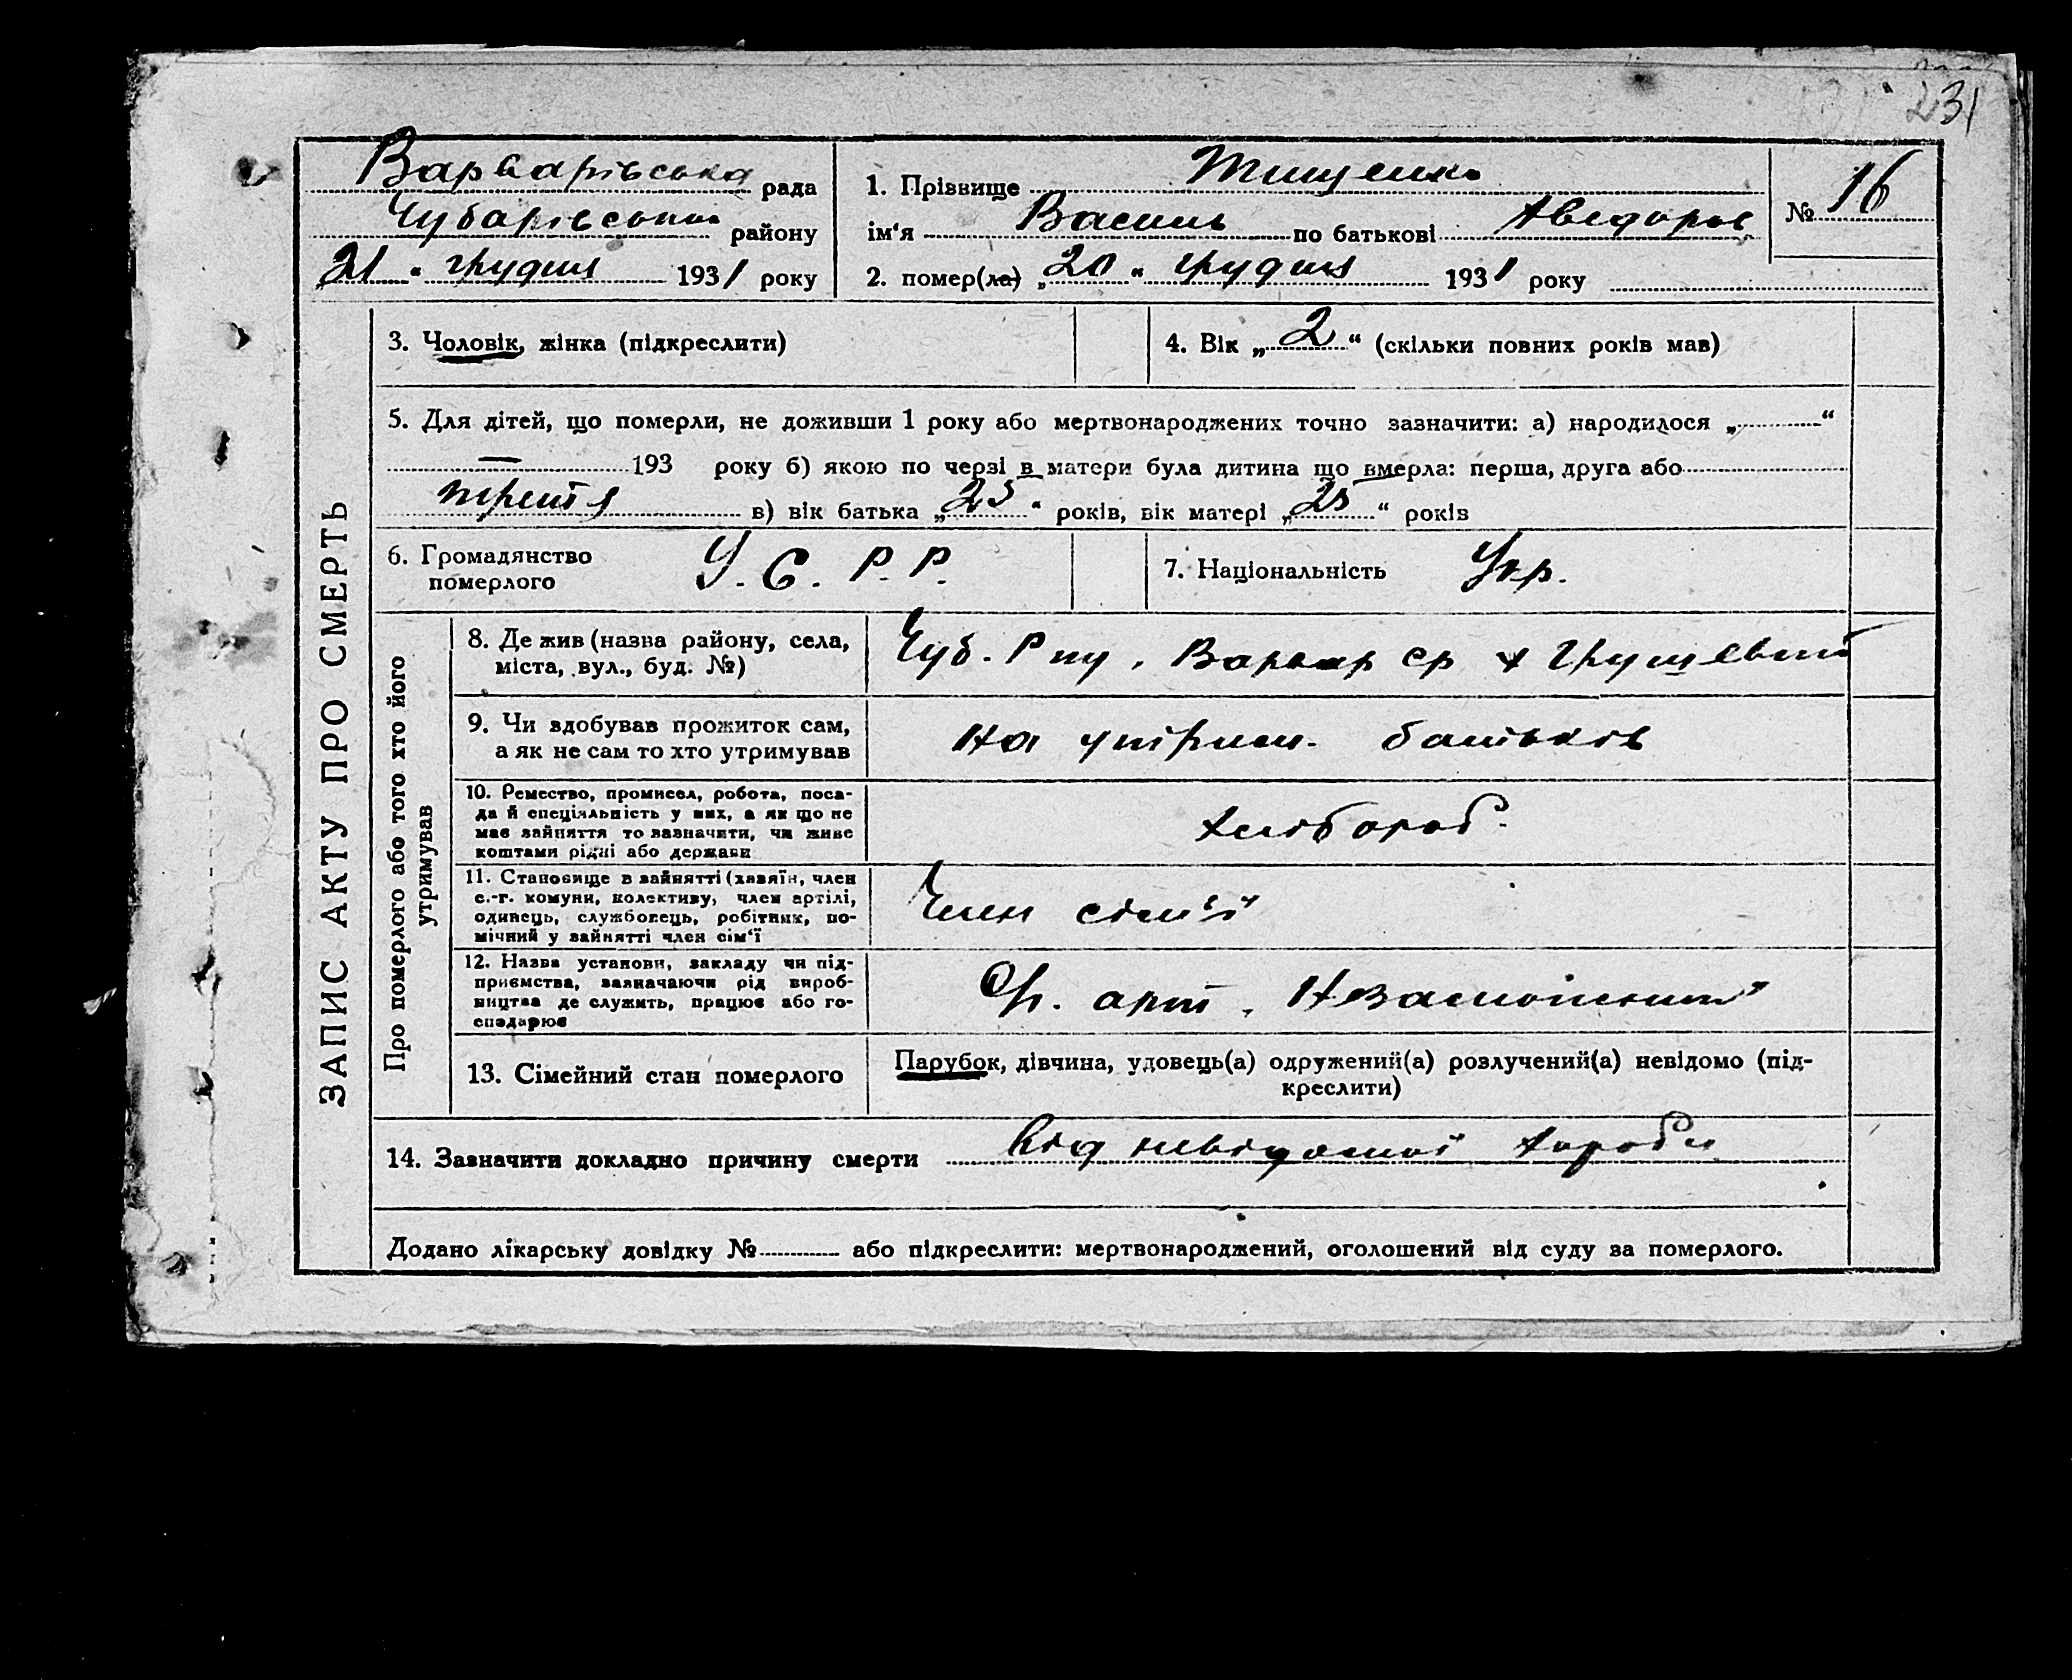 231
Варварівська рада
Чубарівського району
„21“ грудня 1931 року
1. Прізвище Тищенко
ім‘я Василь по батькові Аведоров
2. помер(ла) „20“ грудня 1931 року
№ 16
ЗАПИС АКТУ ПРО СМЕРТЬ
3. Чоловік, жінка (підкреслити)
4. Вік „2“ (скільки повних років мав)
5. Для дітей, що померли, не доживши 1 року або мертвонароджених точно зазначити: а) народилося „ “
— 193 року б) якою по черзі в матери була дитина що вмерла: перша, друга або
третя в) вік батька „25“ років, вік матері „25“ років
6. Громадянство
померлого
У. С. Р. Р.
7. Національність Укр.
Про померлого або того хто його
утримував
8. Де жив (назва району, села,
міста, вул., буд. №)
Чуб. Р ну, Варвар ср х Грушевий
9. Чи здобував прожиток сам,
а як не сам то хто утримував
на утрим. батьків
10. Ремество, промисел, робота, поса-
да й спеціяльність у них, а як що не
має зайняття то зазначити, чи живе
коштами рідні або держави
хлібороб.
11. Становище в зайнятті (хазяїн, член
с.-г. комуни, колективу, член артілі,
одинець, службовець, робітник, по-
мічний у зайнятті член сім‘ї
Член сім‘ї
12. Назва установи, закладу чи під-
приємства, зазначаючи рід вироб-
ництва де служить, працює або го-
сподарює
арт. Незаможник"
13. Сімейний стан померлого
Парубок, дівчина, удовець(а) одружений(а) розлучений(а) невідомо (під-
креслити)
14. Зазначити докладно причину смерти Від невідомої хороби
Додано лікарську довідку № або підкреслити: мертвонароджений, оголошений від суду за померлого.